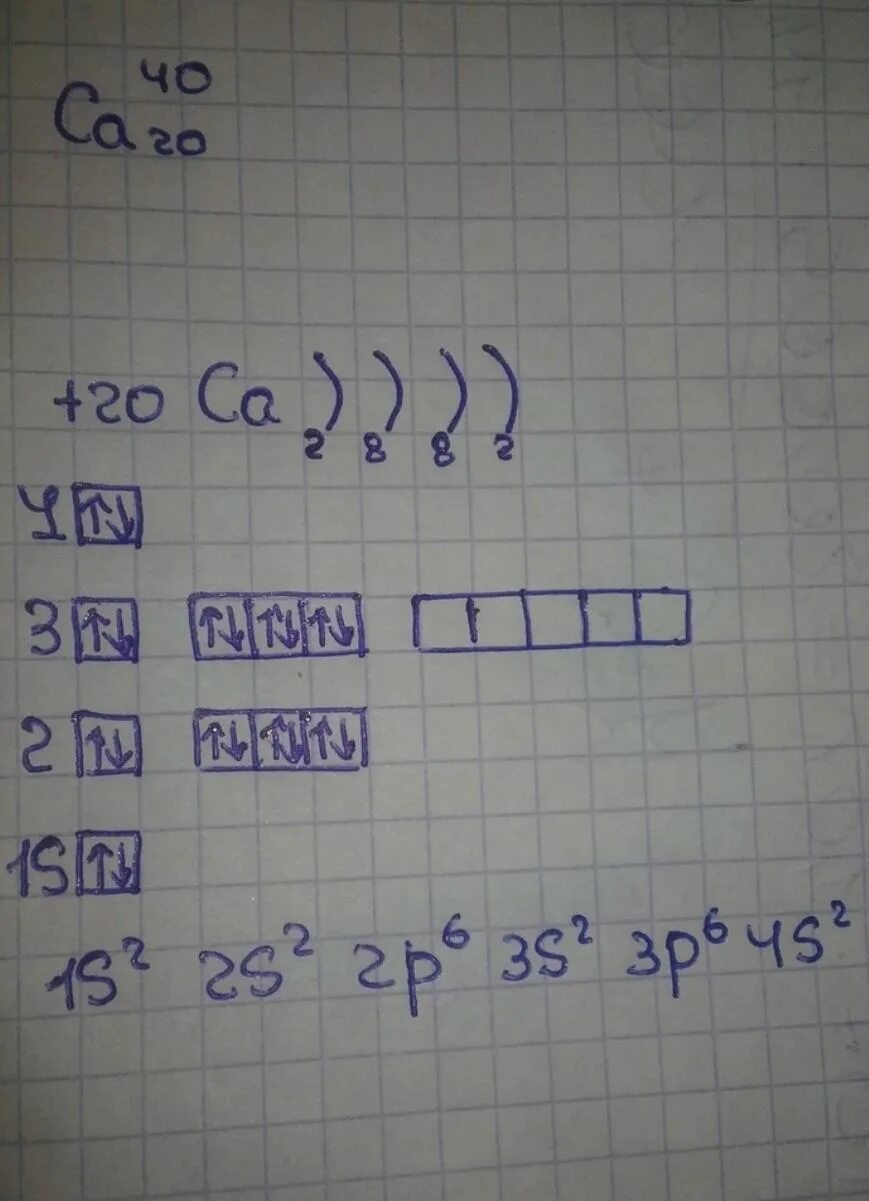 Ca⁴⁰₂₀
+20 Ca ) ) ) )
2 8 8 2
4 ↑↓
3 ↑↓ ↑↓ ↑↓ ↑↓
2 ↑↓ ↑↓ ↑↓ ↑↓
1S ↑↓
1S² 2S² 2p⁶ 3S² 3p⁶ 4S²